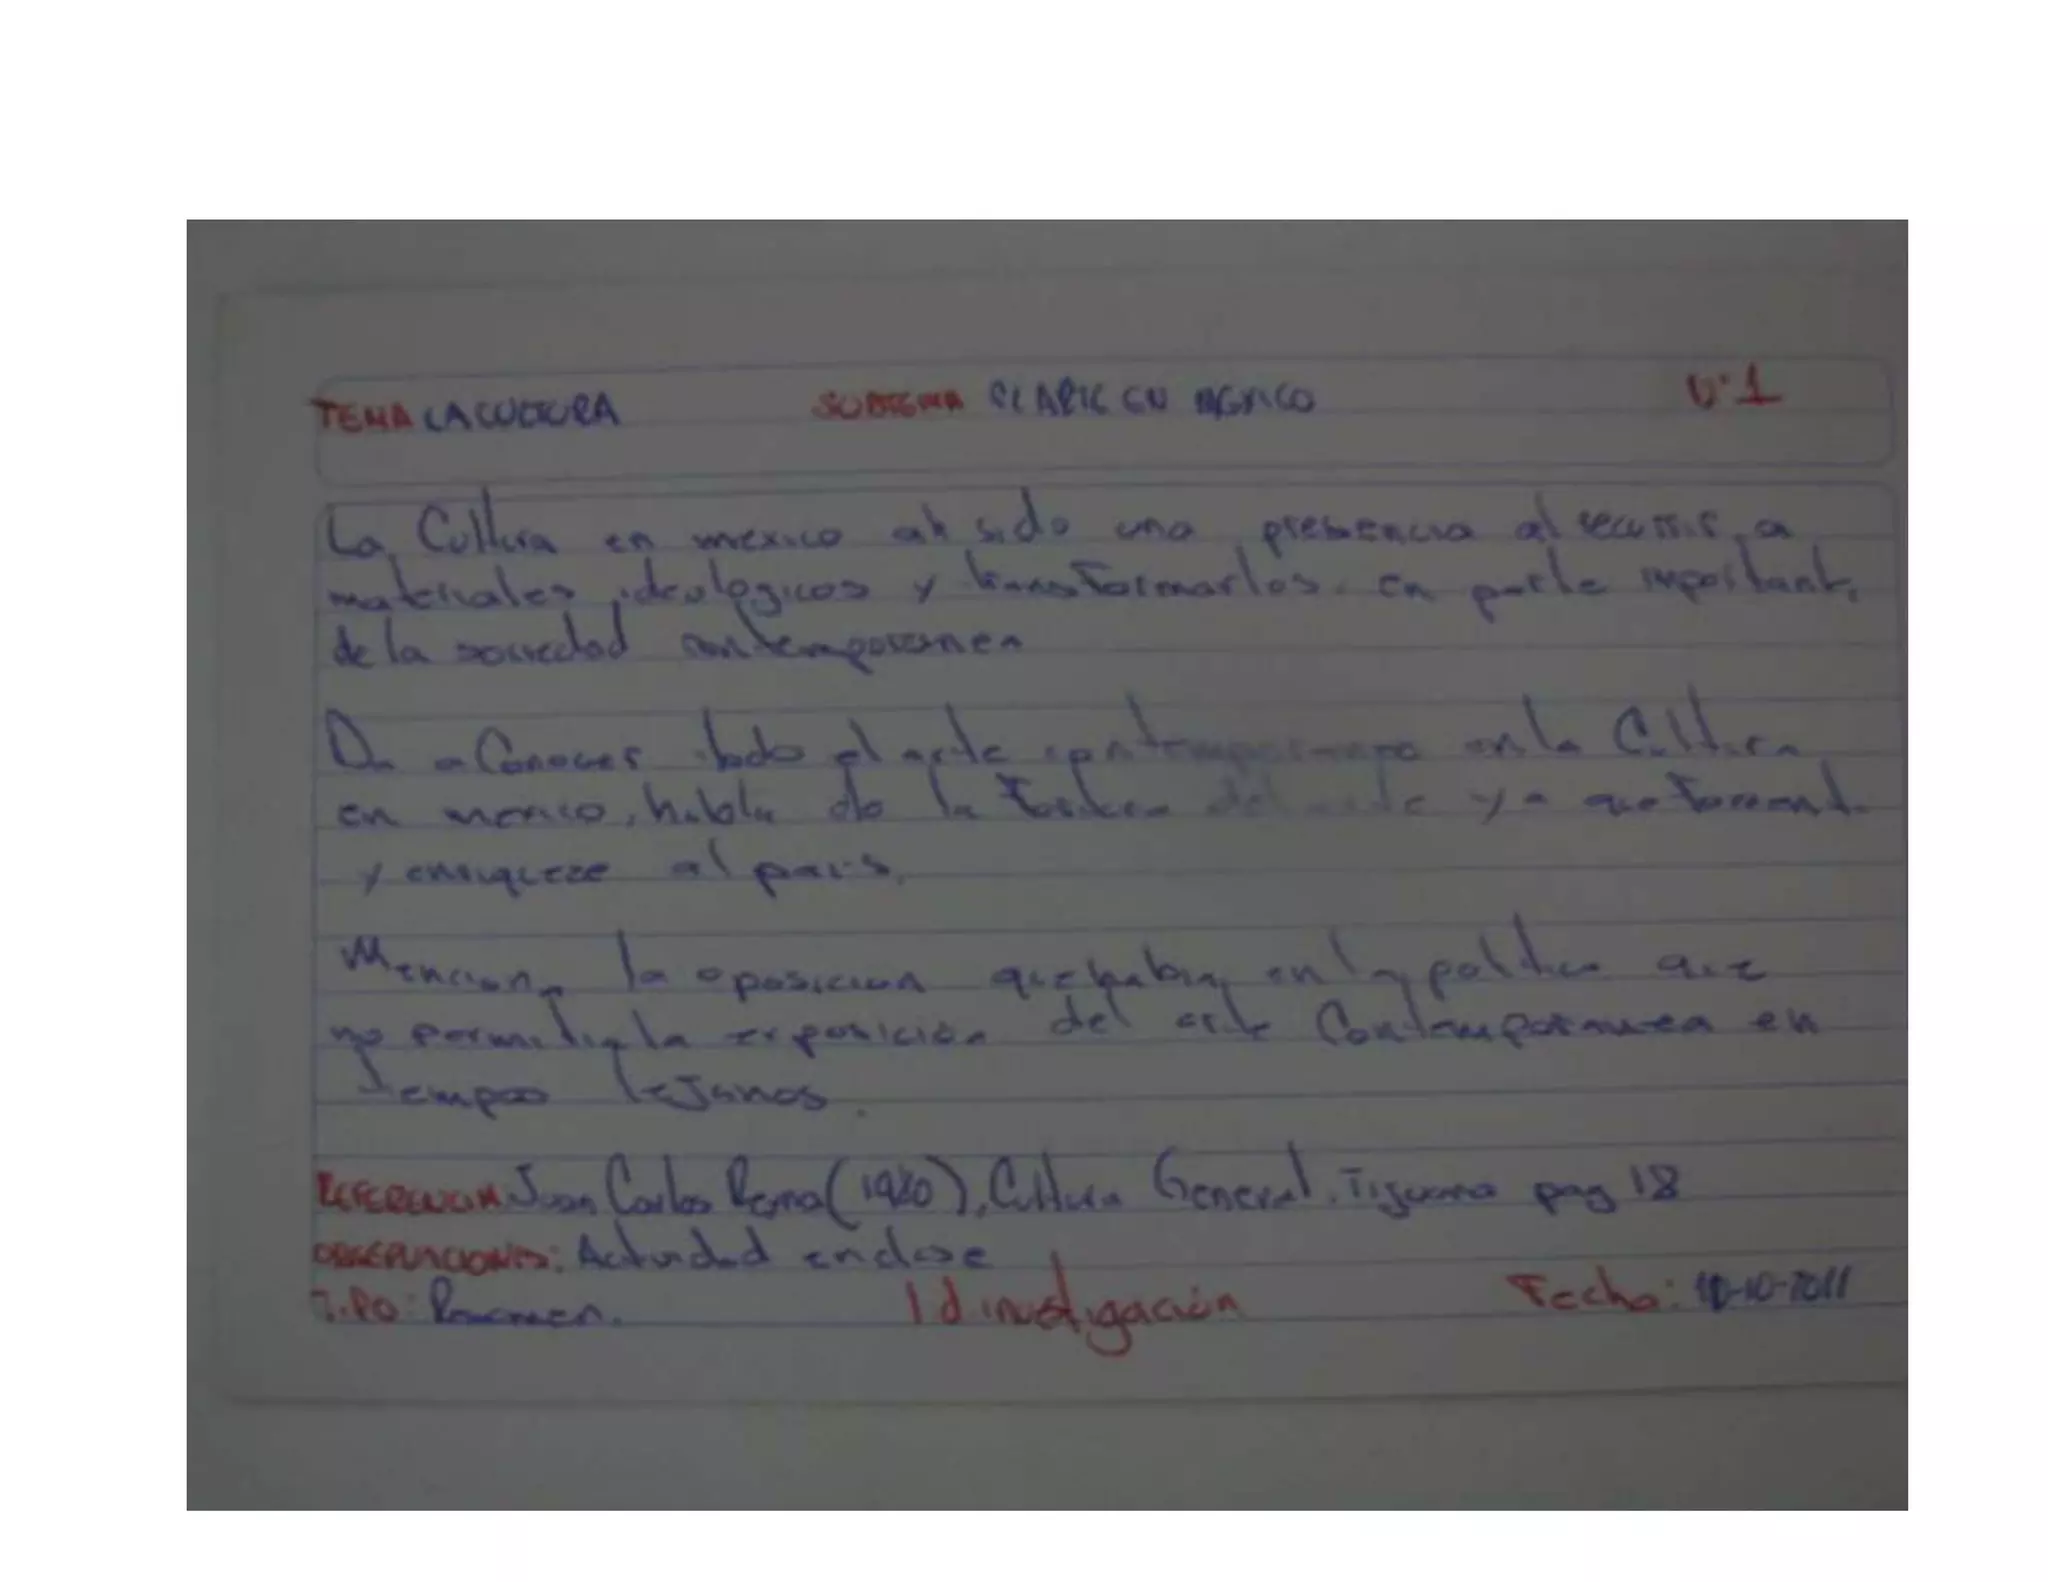 TEMA LA CULTURA SUBTEMA EL ARTE EN MEXICO N°1
La Cultura en mexico ah sido una presencia al recurrir a
materiales ideologicos y transformarlos. en parte important
de la sociedad contemporanea
Da a Conocer todo el arte contemporaneo en la Cultura
en mexico, habla de la del arte ya que foment
y enriqueze al pais.
Menciona la oposicion que habia en la politica que
no permitia la exposicion del arte Contemporanea en
tiempos lejanos.
REFERENCIA Juan Carlos Reyna (1980), Cultura General. Tijuana pag 18
OBSERVACIONES: Actividad enclase
TIPO: Resumen. Id. investigación Fecha: -10-2011